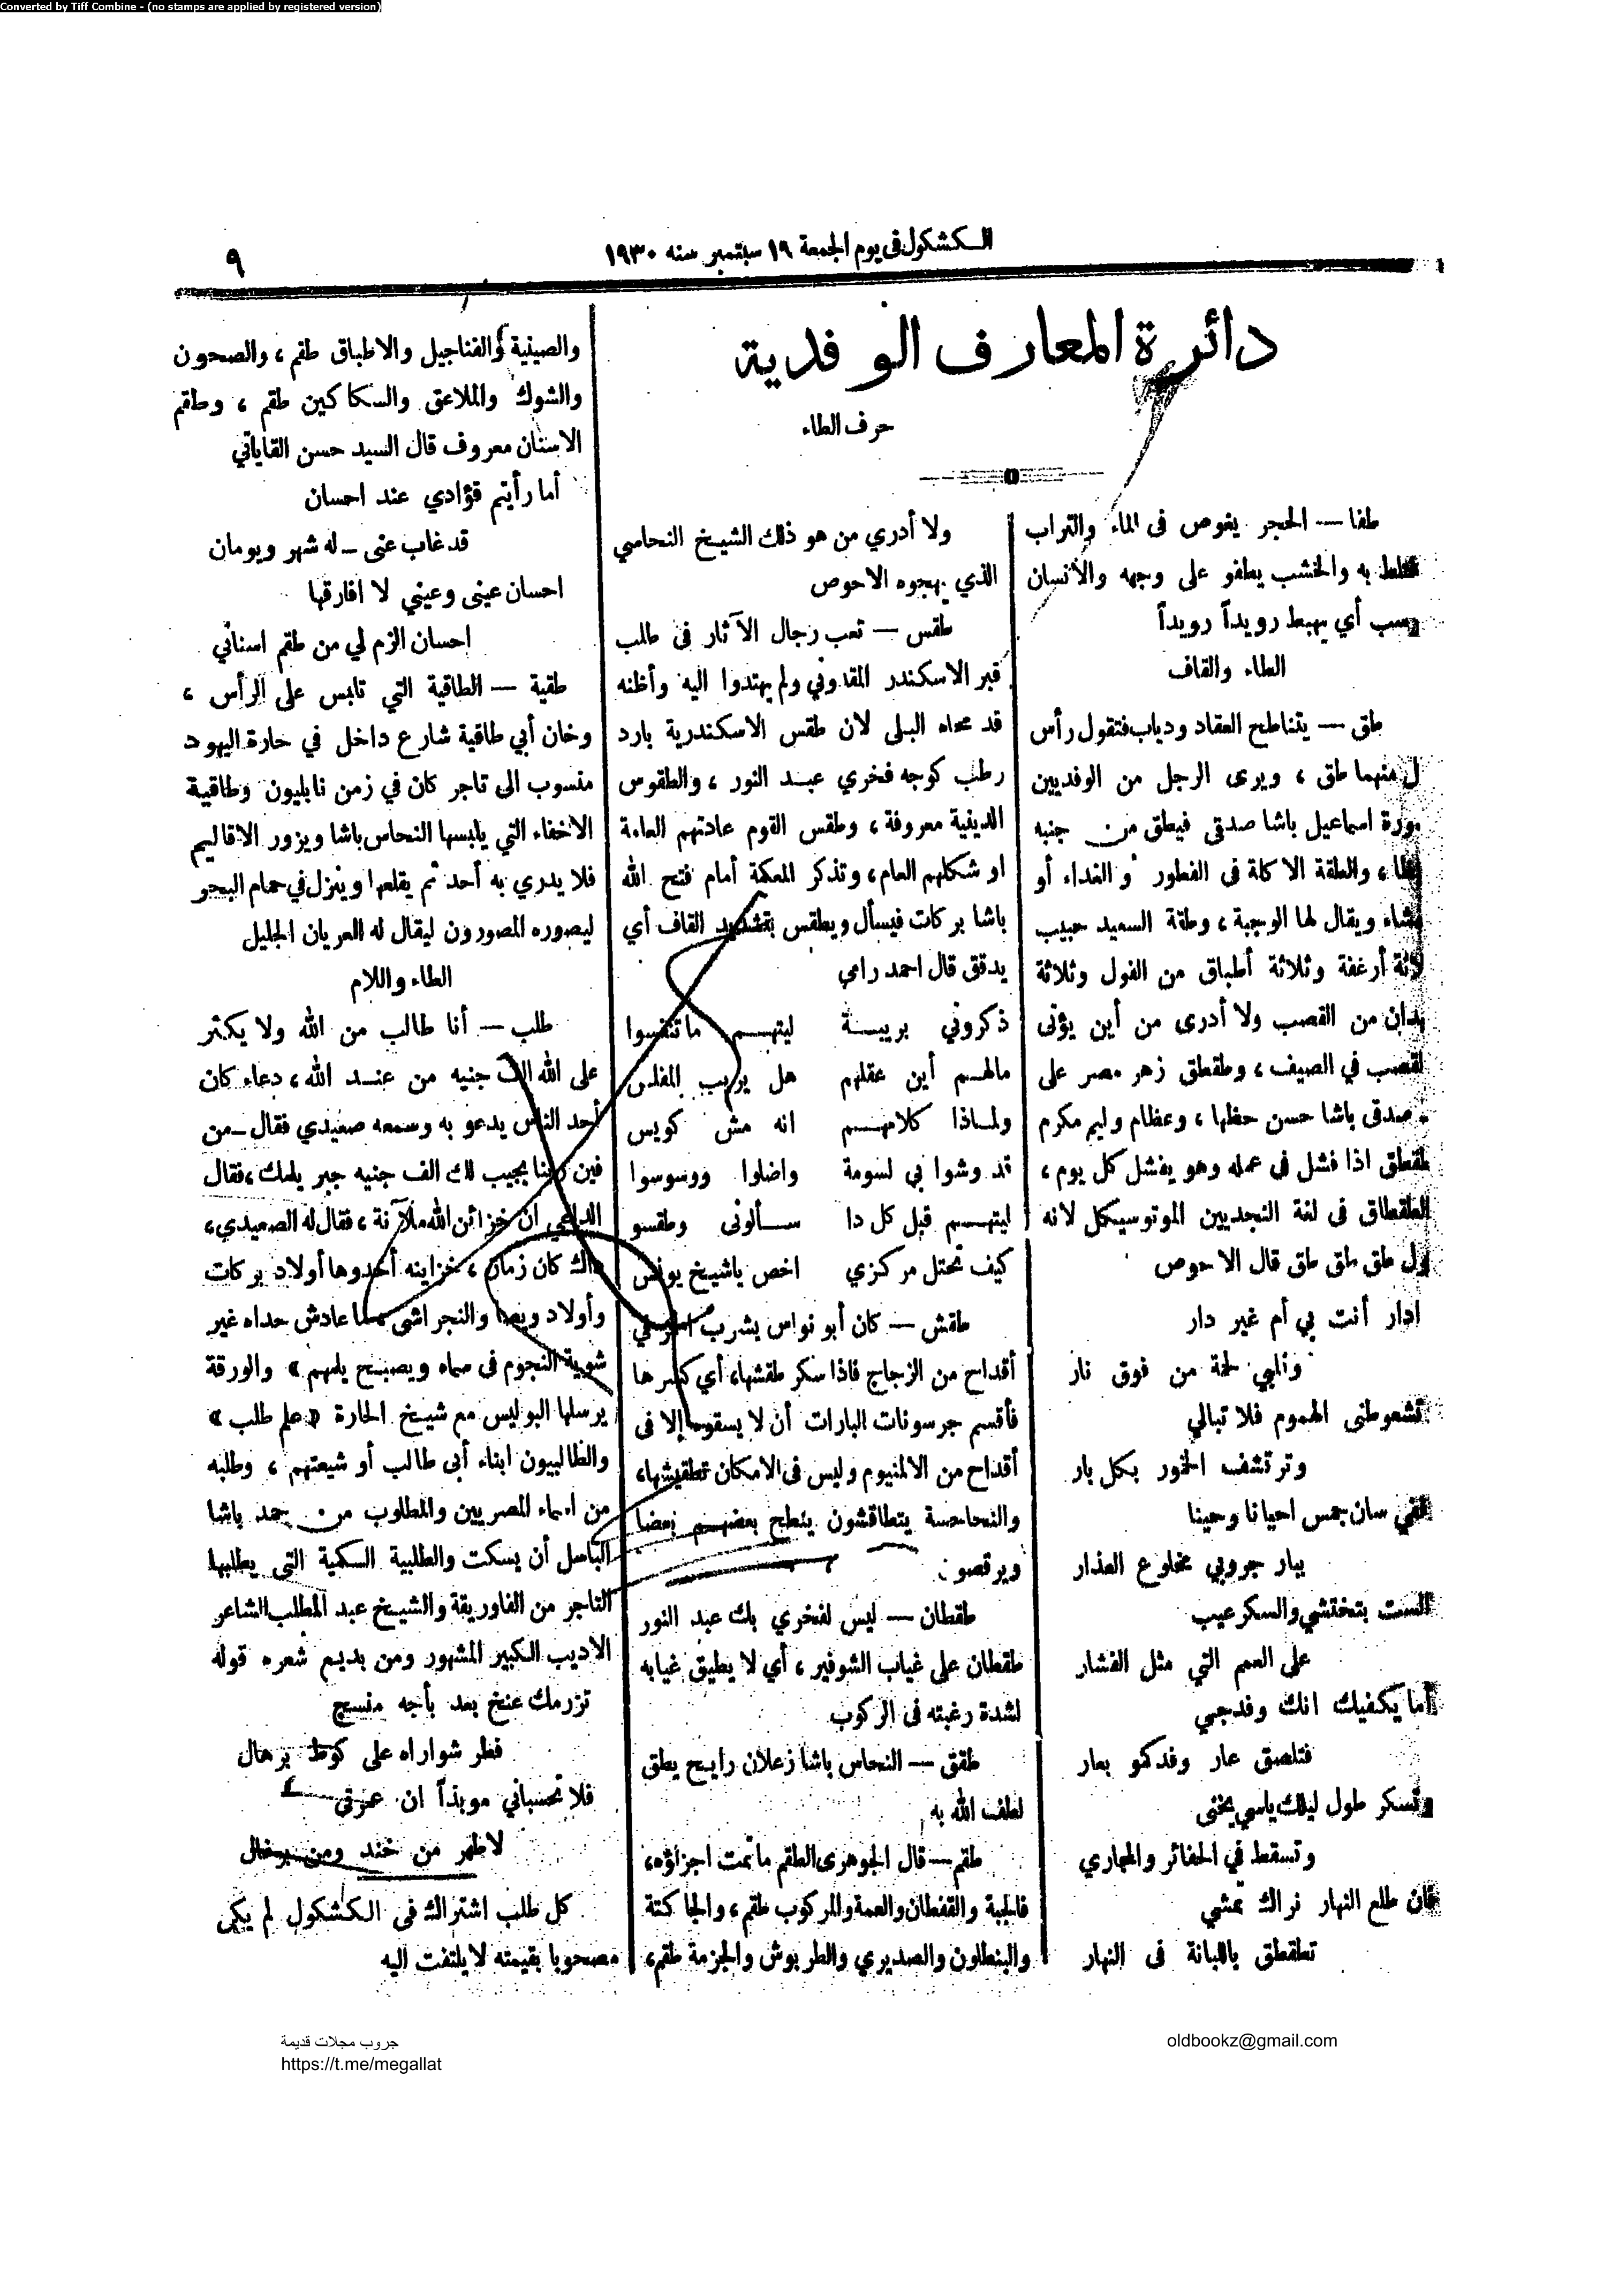 Converted by Tiff Combine - (no stamps are applied by registered version)
الكشكول في يوم الجمعة ١٩ سبتمبر سنه ١٩٣٠
٩
دائرة المعارف الوفدية
حرف الطاء
طفا — الحجر يغوص فى الماء والتراب
به والخشب يطفو على وجهه والانسان
أي يهبط رويداً رويداً
الطاء والقاف
طق — يتناطح العقاد ودياب فتقول رأس
منهما طق ، ويرى الرجل من الوفديين
اسماعيل باشا صدقى فيطق من جنبه
والطقة الاكلة فى الفطور و الغداء أو
ويقال لها الوجبة ، وطقة السعيد حبيب
أرغفة وثلاثة أطباق من الفول وثلاثة
من القصب ولا أدرى من أين يؤتى
فى الصيف ، وطقطق زهر مصر على
صدقى باشا حسن حظها ، وعظام وليم مكرم
اذا فشل فى عمله وهو يفشل كل يوم ،
الطقطاق فى لغة النجديين الموتوسيكل لانه
طق طق طق قال الاحوص
ادار أنت بي أم غير دار
وقلبي لحمة من فوق نار
الهموم فلا تبالي
وترتشف الخمور بكل بار
سان جمس احيانا وحينا
ببار جروبي مخلوع العذار
الست بتختشي والسكر عيب
على العمم التي مثل الفشار
أما يكفيك انك وفدجي
فتلصق عار وفدكمو بعار
طول ليلك ياسي يخنى
وتسقط في الحفائر والمجاري
طلع النهار نراك تمشي
تطقطق باللبانة فى النهار
ولا أدري من هو ذلك الشيخ النحاسي
الذي يهجوه الاحوص
طقس — تعب رجال الآثار فى طلب
قبر الاسكندر المقدوني ولم يهتدوا اليه وأظنه
قد محاه البلى لان طقس الاسكندرية بارد
رطب كوجه فخري عبد النور ، والطقوس
الدينية معروفة ، وطقس القوم عادتهم العامة
او شكلهم العام ، وتذكر المعكمة أمام فتح الله
باشا بركات فيسأل ويطقس بتشديد القاف أي
يدقق قال احمد رامي
ذكروني بريبة ليتهم ماتنفسوا
مالهم أين عقلهم هل يريب المفلس
ولماذا كلامهم انه مش كويس
قد وشوا بي لسومة واضلوا ووسوسوا
ليتهم قبل كل دا سألونى وطقسو
كيف تحتل مركزي اخص ياشيخ يونس
طقش — كان أبو نواس يشرب
أقداح من الزجاج فاذا سكر طقشها، أي كسرها
فأقسم جرسونات البارات أن لا يسقوه إلا فى
أقداح من الالمنيوم وليس فى الامكان تطقيشها،
والنحاسة يتطاقشون ينطح بعضهم بعضا
ويرقصون
طقطان — ليس لفخري بك عبد النور
طقطان على غياب الشوفير ، أي لا يطيق غيابه
لشدة رغبته فى الركوب
طقق — النحاس باشا زعلان رايح يطق
لطف الله به
طقم — قال الجوهرى الطقم ماتمت اجزاؤه،
فالجبة والقفطان والعمة والمركوب طقم ، والجاكتة
والبنطلون والصديري والطربوش والجزمة طقم،
والصينية والفناجيل والاطباق طقم ، والصحون
والشوك والملاعق والسكاكين طقم ، وطقم
الاسنان معروف قال السيد حسن القاياتي
أما رأيتم فؤادي عند احسان
قد غاب عنى — له شهر ويومان
احسان عينى وعيني لا افارقها
احسان الزم لي من طقم اسناني
طقية — الطاقية التي تلبس على الرأس ،
وخان أبي طاقية شارع داخل في حارة اليهود
منسوب الى تاجر كان في زمن نابليون وطاقية
الاخفاء التي يلبسها النحاس باشا ويزور الاقاليم
فلا يدري به أحد ثم يقلعها وينزل في حمام البحر
ليصوره المصورون ليقال له العريان الجليل
الطاء واللام
طلب — أنا طالب من الله ولا يكثر
على الله الف جنيه من عند الله ، دعاء كان
أحد الناس يدعو به وسمعه صعيدي فقال — من
فين ربنا يجيب لك الف جنيه جبر يلمك ، فقال
الداعي ان خزائن الله ملآنة ، فقال له الصعيدي ،
كان زمان ، خزاينه أخدوها أولاد بركات
وأولاد ويصا والنجراشى ما عادش حداه غير
شوية النجوم فى سماه ويصبح يلمهم » والورقة
يرسلها البوليس مع شيخ الحارة « علم طلب »
والطالبيون ابناء أبى طالب أو شيعتهم ، وطلبه
من اسماء المصريين والمطلوب من حمد باشا
الباسل أن يسكت والطلبية السكمية التى يطلبها
التاجر من الفاوريقة والشيخ عبد المطلب الشاعر
الاديب الكبير المشهور ومن بديع شعره قوله
تزرمك عنخ بعد بأجه منسج
فطر شواراه على كوط برهال
فلا تحسباني موبذاً ان عمرقي
لاظهر من خند ومن
كل طلب اشتراك فى الكشكول لم يكن
مصحوبا بقيمته لا يلتفت اليه
جروب مجلات قديمة
https://t.me/megallat
oldbookz@gmail.com